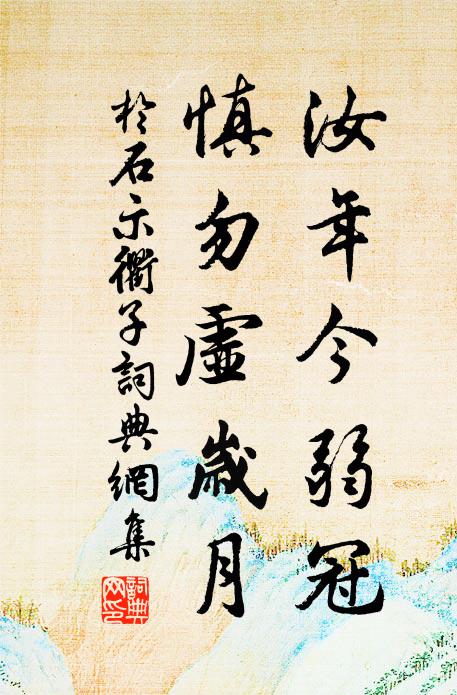 汝年今弱冠
慎勿虛歲月
於石示衢子詞典網集
詞典